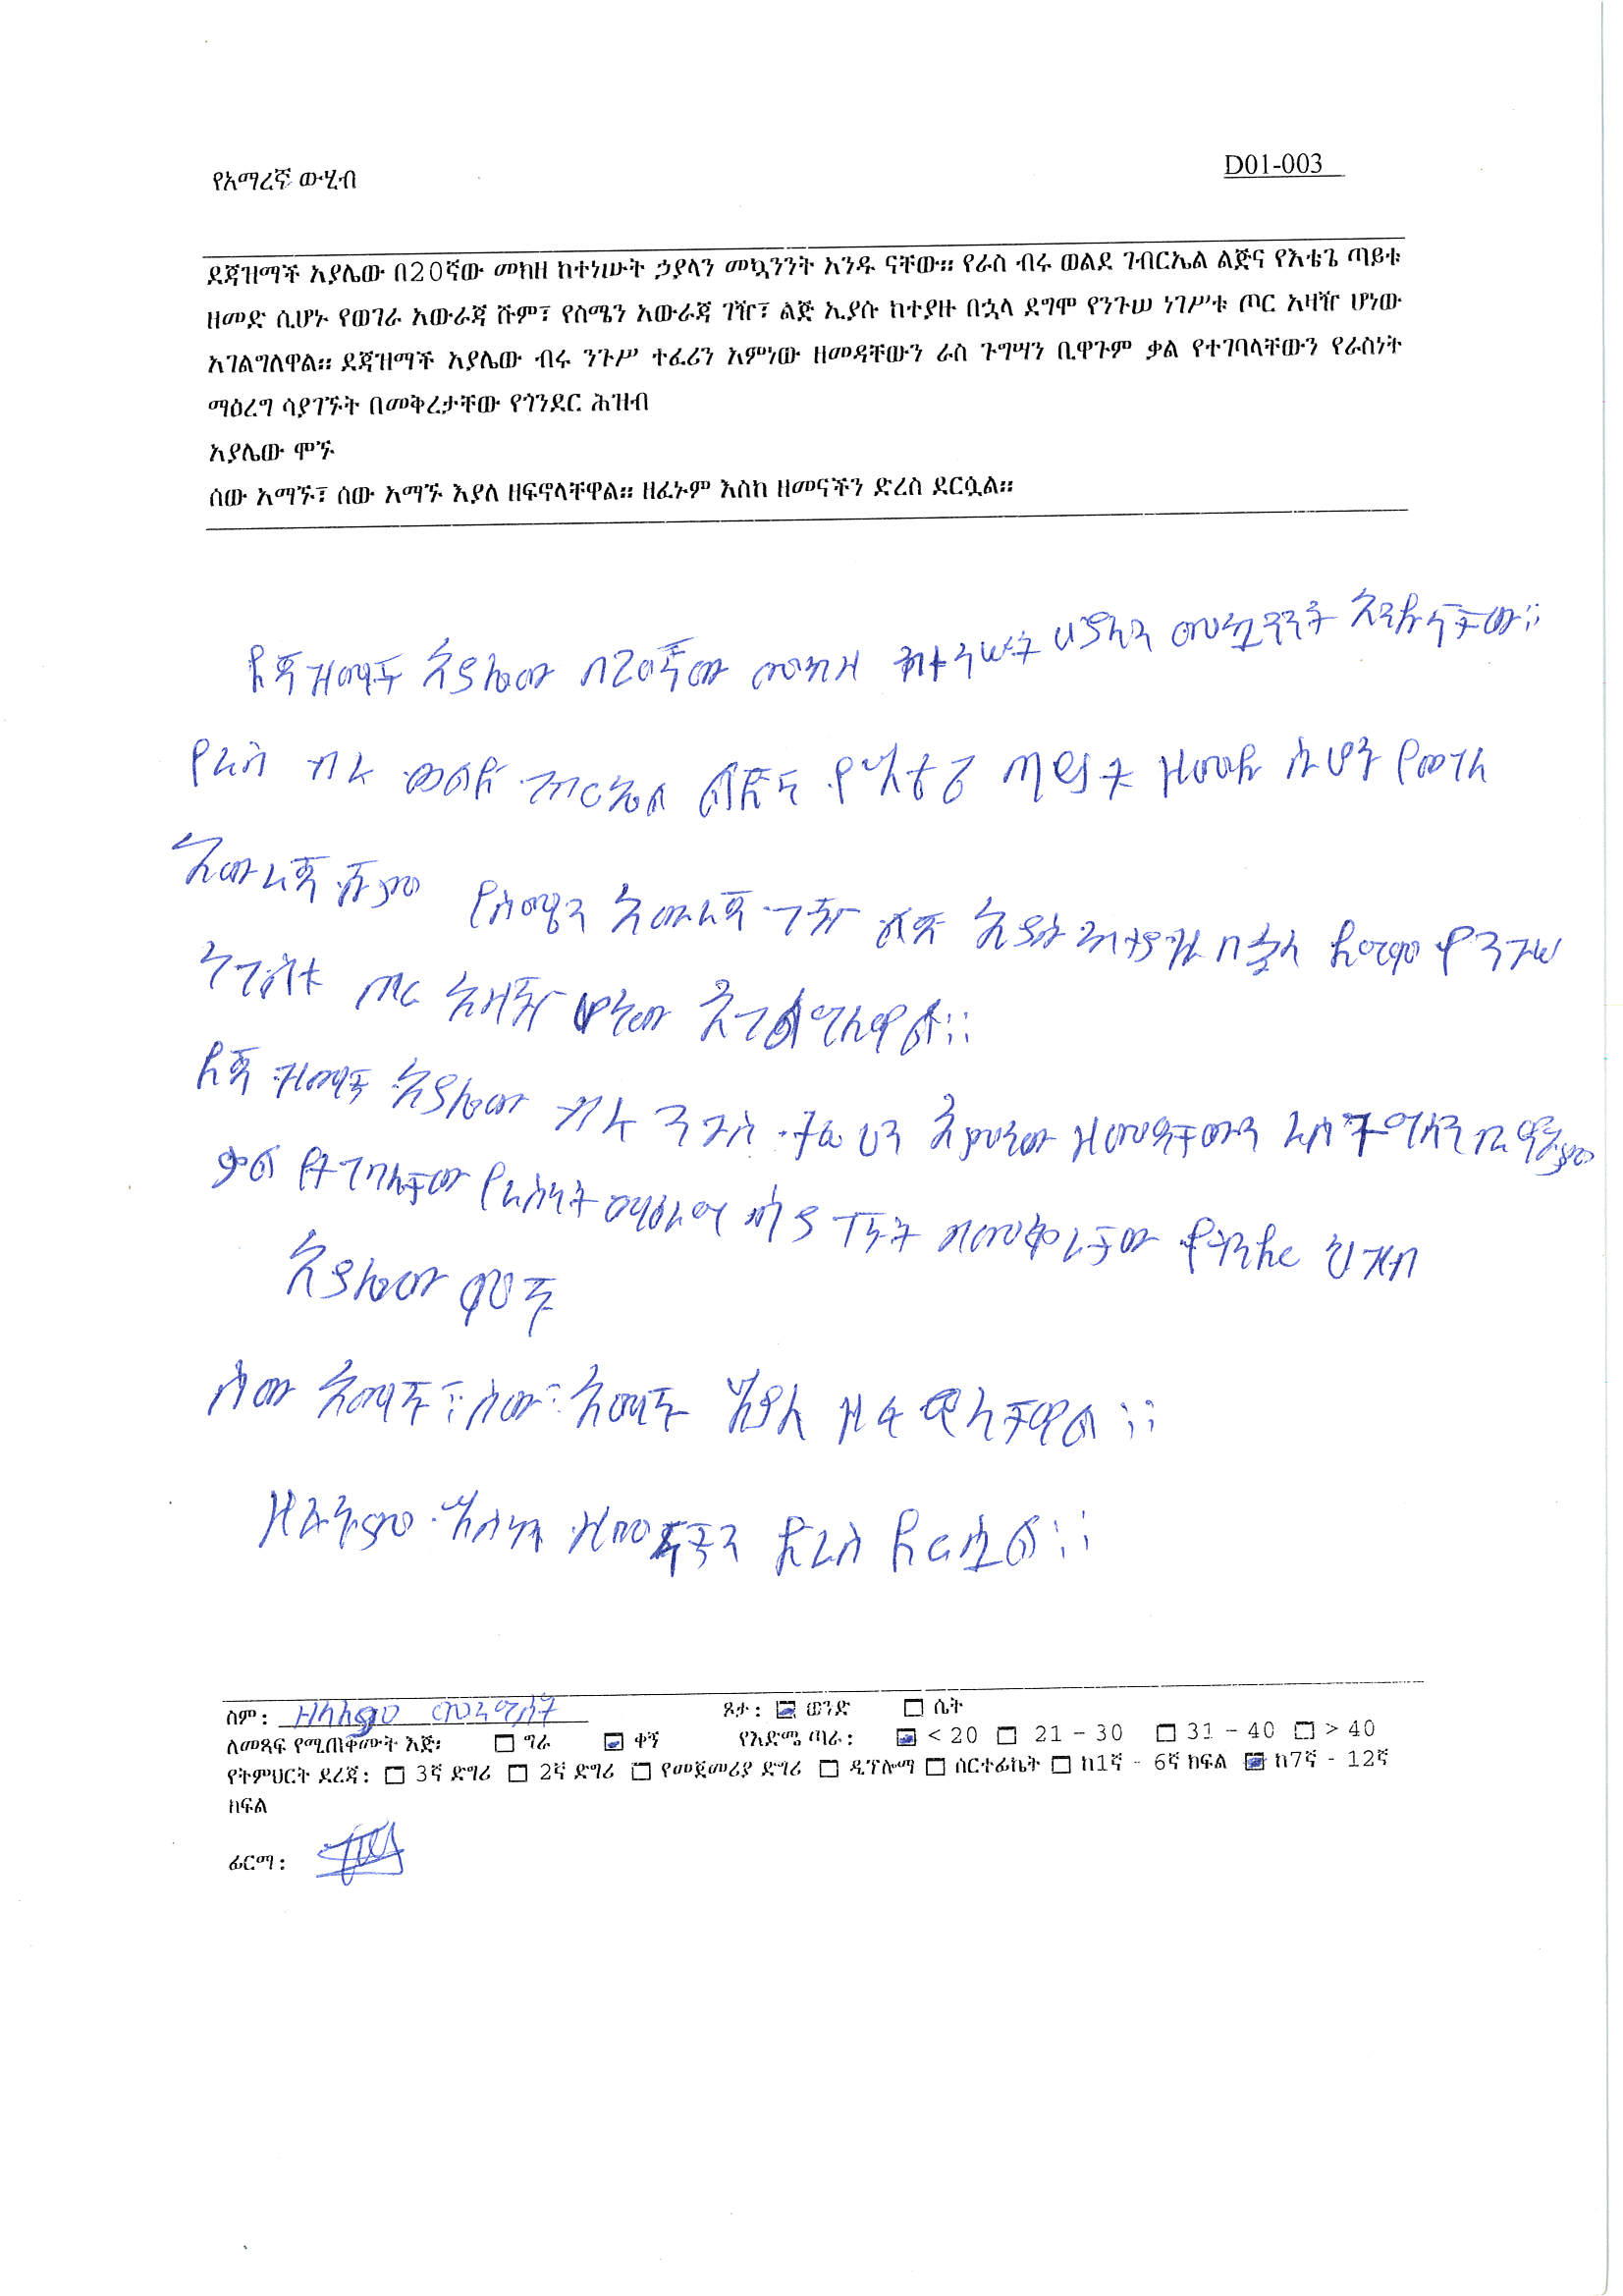 የአማረኛ ውሂብ
D01-003
ደጃዝማች አያሌው በ20ኛው መክዘ ከተነሡት ኃያላን መኳንንት አንዱ ናቸው። የራስ ብሩ ወልደ ገብርኤል ልጅና የእቴጌ ጣይቱ
ዘመድ ሲሆኑ የወገራ አውራጃ ሹም፣ የስሜን አውራጃ ገዥ፣ ልጅ ኢያሱ ከተያዙ በኋላ ደግሞ የንጉሠ ነገሥቱ ጦር አዛዥ ሆነው
አገልግለዋል። ደጃዝማች አያሌው ብሩ ንጉሥ ተፈሪን አምነው ዘመዳቸውን ራስ ጉግሣን ቢዋጉም ቃል የተገባላቸውን የራስነት
ማዕረግ ሳያገኙት በመቅረታቸው የጎንደር ሕዝብ
አያሌው ሞኙ
ሰው አማኙ፣ ሰው አማኙ እያለ ዘፍኖላቸዋል። ዘፈኑም እስከ ዘመናችን ድረስ ደርሷል።
ደጃዝማች አያሌው በ20ኛው መክዘ ከተነሡት ሀያላን መኳንንት አንዱ ናቸው።
የራስ ብሩ ወልደ ገብርኤል ልጅና የእቴጌ ጣይቱ ዘመዱ ሲሆን የወገራ
አውራጃ ሹም የስሜን አውራጃ ገዥ ልጅ ኢያሱ ከተያዙ በኋላ ደግሞ የንጉሠ
ነገስቱ ጦር አዛዥ ሆነው አገልግለዋል።
ደጃዝማች አያሌው ብሩ ንጉስ ተፈሪን አምነው ዘመዳቸውን ራስ ጉግሳን ቢዋጉም
ቃል የተገባላቸው የራስነት ማዕረግ ሳያገኙት በመቅረታቸው የጎንደር ህዝብ
አያሌው ሞኙ
ሰው አማኙ፣ ሰው አማኙ እያለ ዘፍኖላቸዋል።
ዘፈኑም እስከ ዘመናችን ድረስ ደርሷል።
ስም:
ጾታ: ወንድ ሴት
ለመጻፍ የሚጠቀሙት እጅ፡ ግራ ቀኝ የእድሜ ጣራ: < 20 21 - 30 31 - 40 > 40
የትምህርት ደረጃ: 3ኛ ድግሪ 2ኛ ድግሪ የመጀመሪያ ድግሪ ዲፕሎማ ሰርተፊኬት ከ1ኛ - 6ኛ ክፍል ከ7ኛ - 12ኛ
ክፍል
ፊርማ: